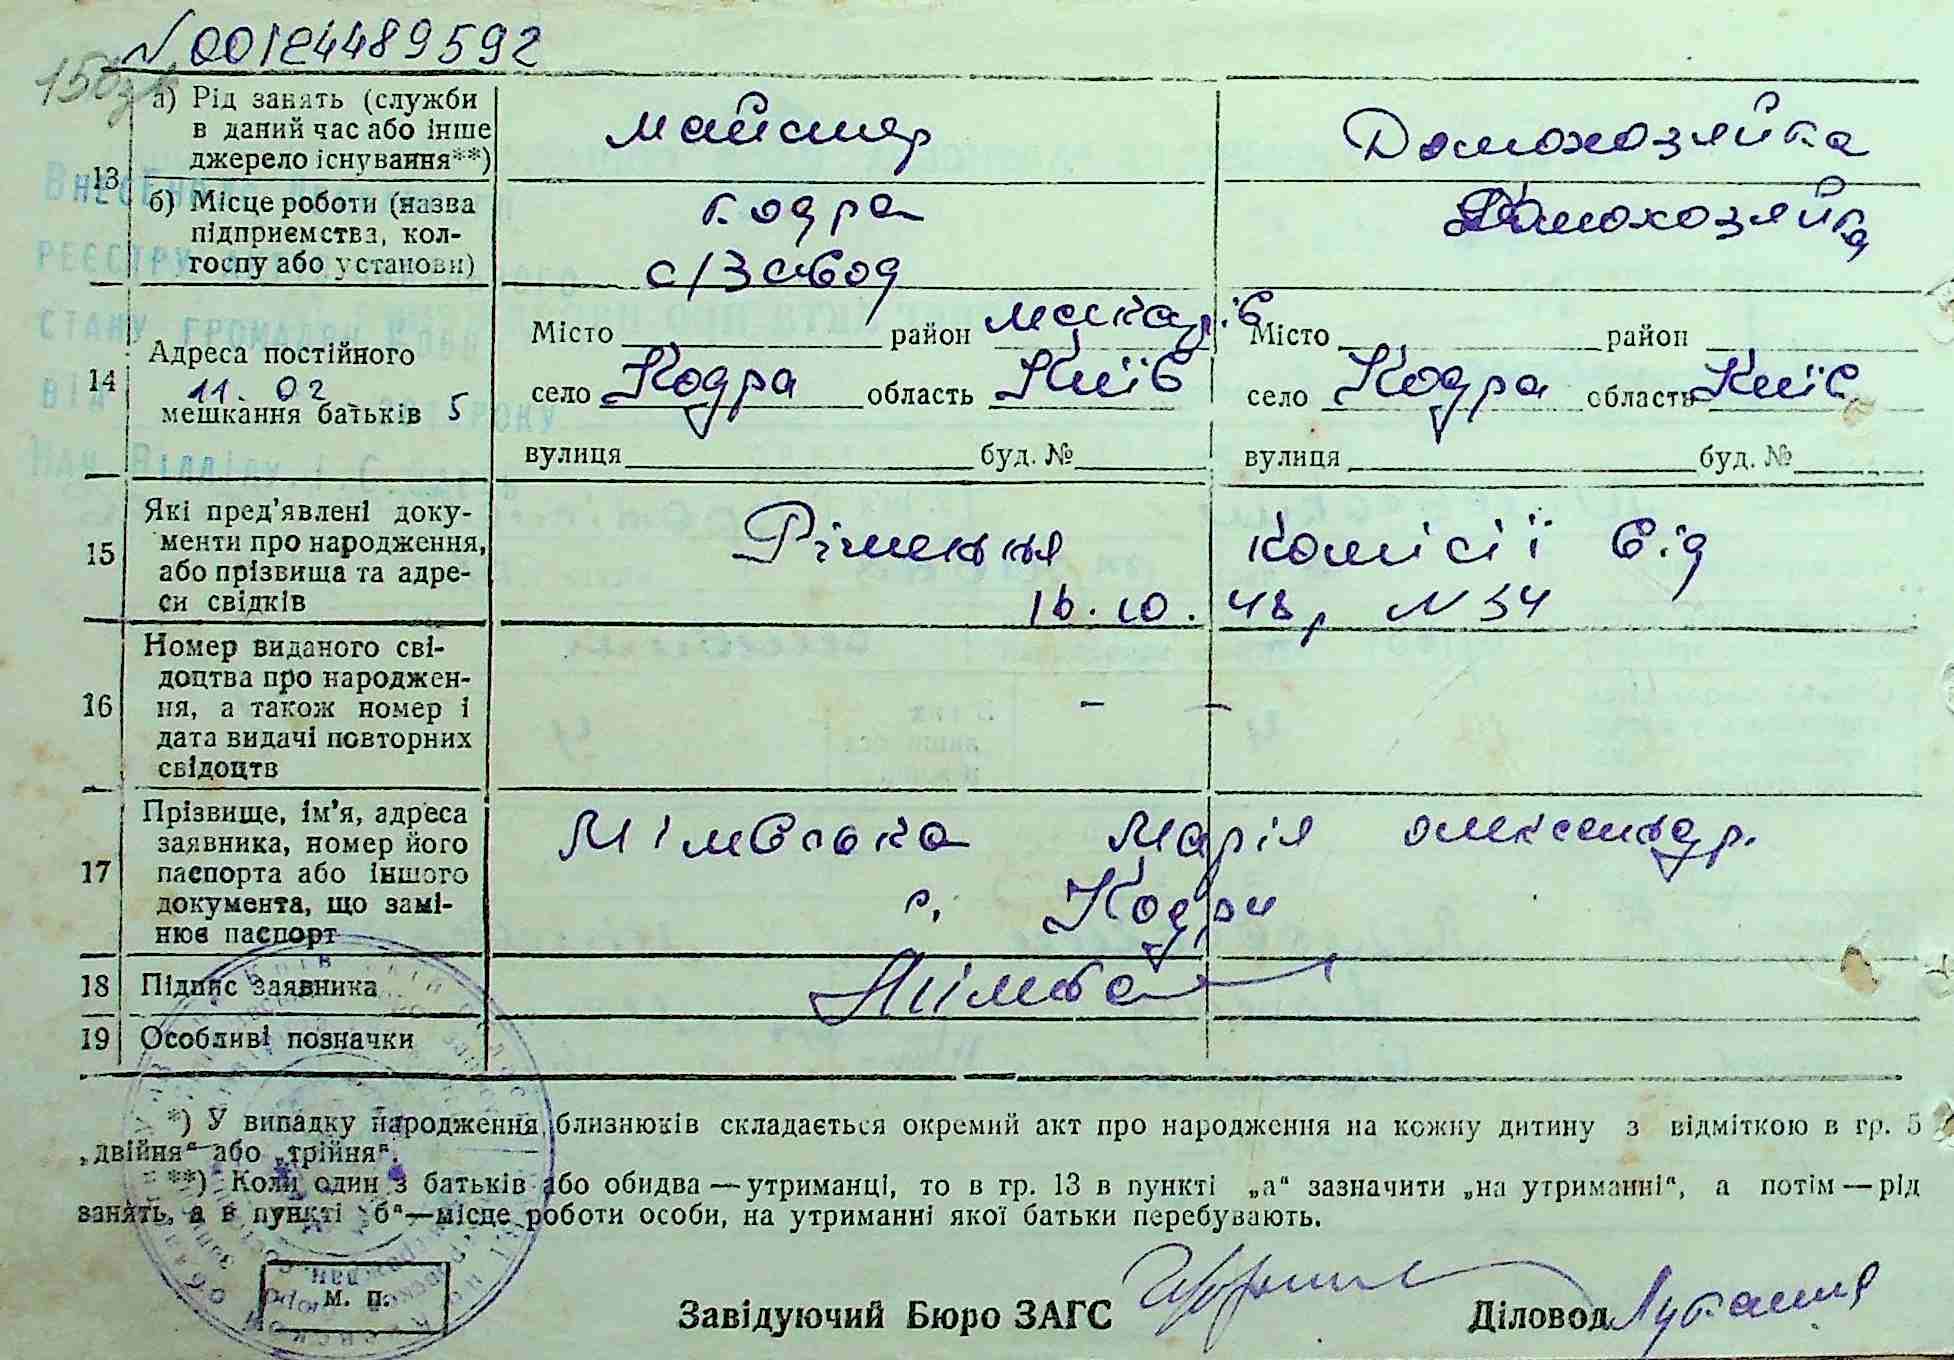 N 00124489592
а) Рід занять (служби
в даний час або інше
джерело існування**)
майстер
Домохозяйка
13
б) Місце роботи (назва
підприємства, кол-
госпу або установи)
Кодра
с/Завод
Домохозяйка
14
Адреса постійного
мешкання батьків
11. 02 5
Місто район Макарів
село Кодра область Київ
вулиця буд. №
Місто район
село Кодра область Київ
вулиця буд. №
15
Які пред'явлені доку-
менти про народження,
або прізвища та адре-
си свідків
Рішення комісії від
16.10.48р N 34
16
Номер виданого сві-
доцтва про народжен-
ня, а також номер і
дата видачі повторних
свідоцтв
– –
17
Прізвище, ім'я, адреса
заявника, номер його
паспорта або іншого
документа, що замі-
нює паспорт
Марія Олександр.
с. Кодра
18
Підпис заявника
19
Особливі позначки
*) У випадку народження близнюків складається окремий акт про народження на кожну дитину з відміткою в гр. 5
„двійня“ або „трійня“.
**) Коли один з батьків або обидва — утриманці, то в гр. 13 в пункті „а“ зазначити „на утриманні“, а потім — рід
занять, а в пункті „б“—місце роботи особи, на утриманні якої батьки перебувають.
м. п.
Завідуючий Бюро ЗАГС
Діловод